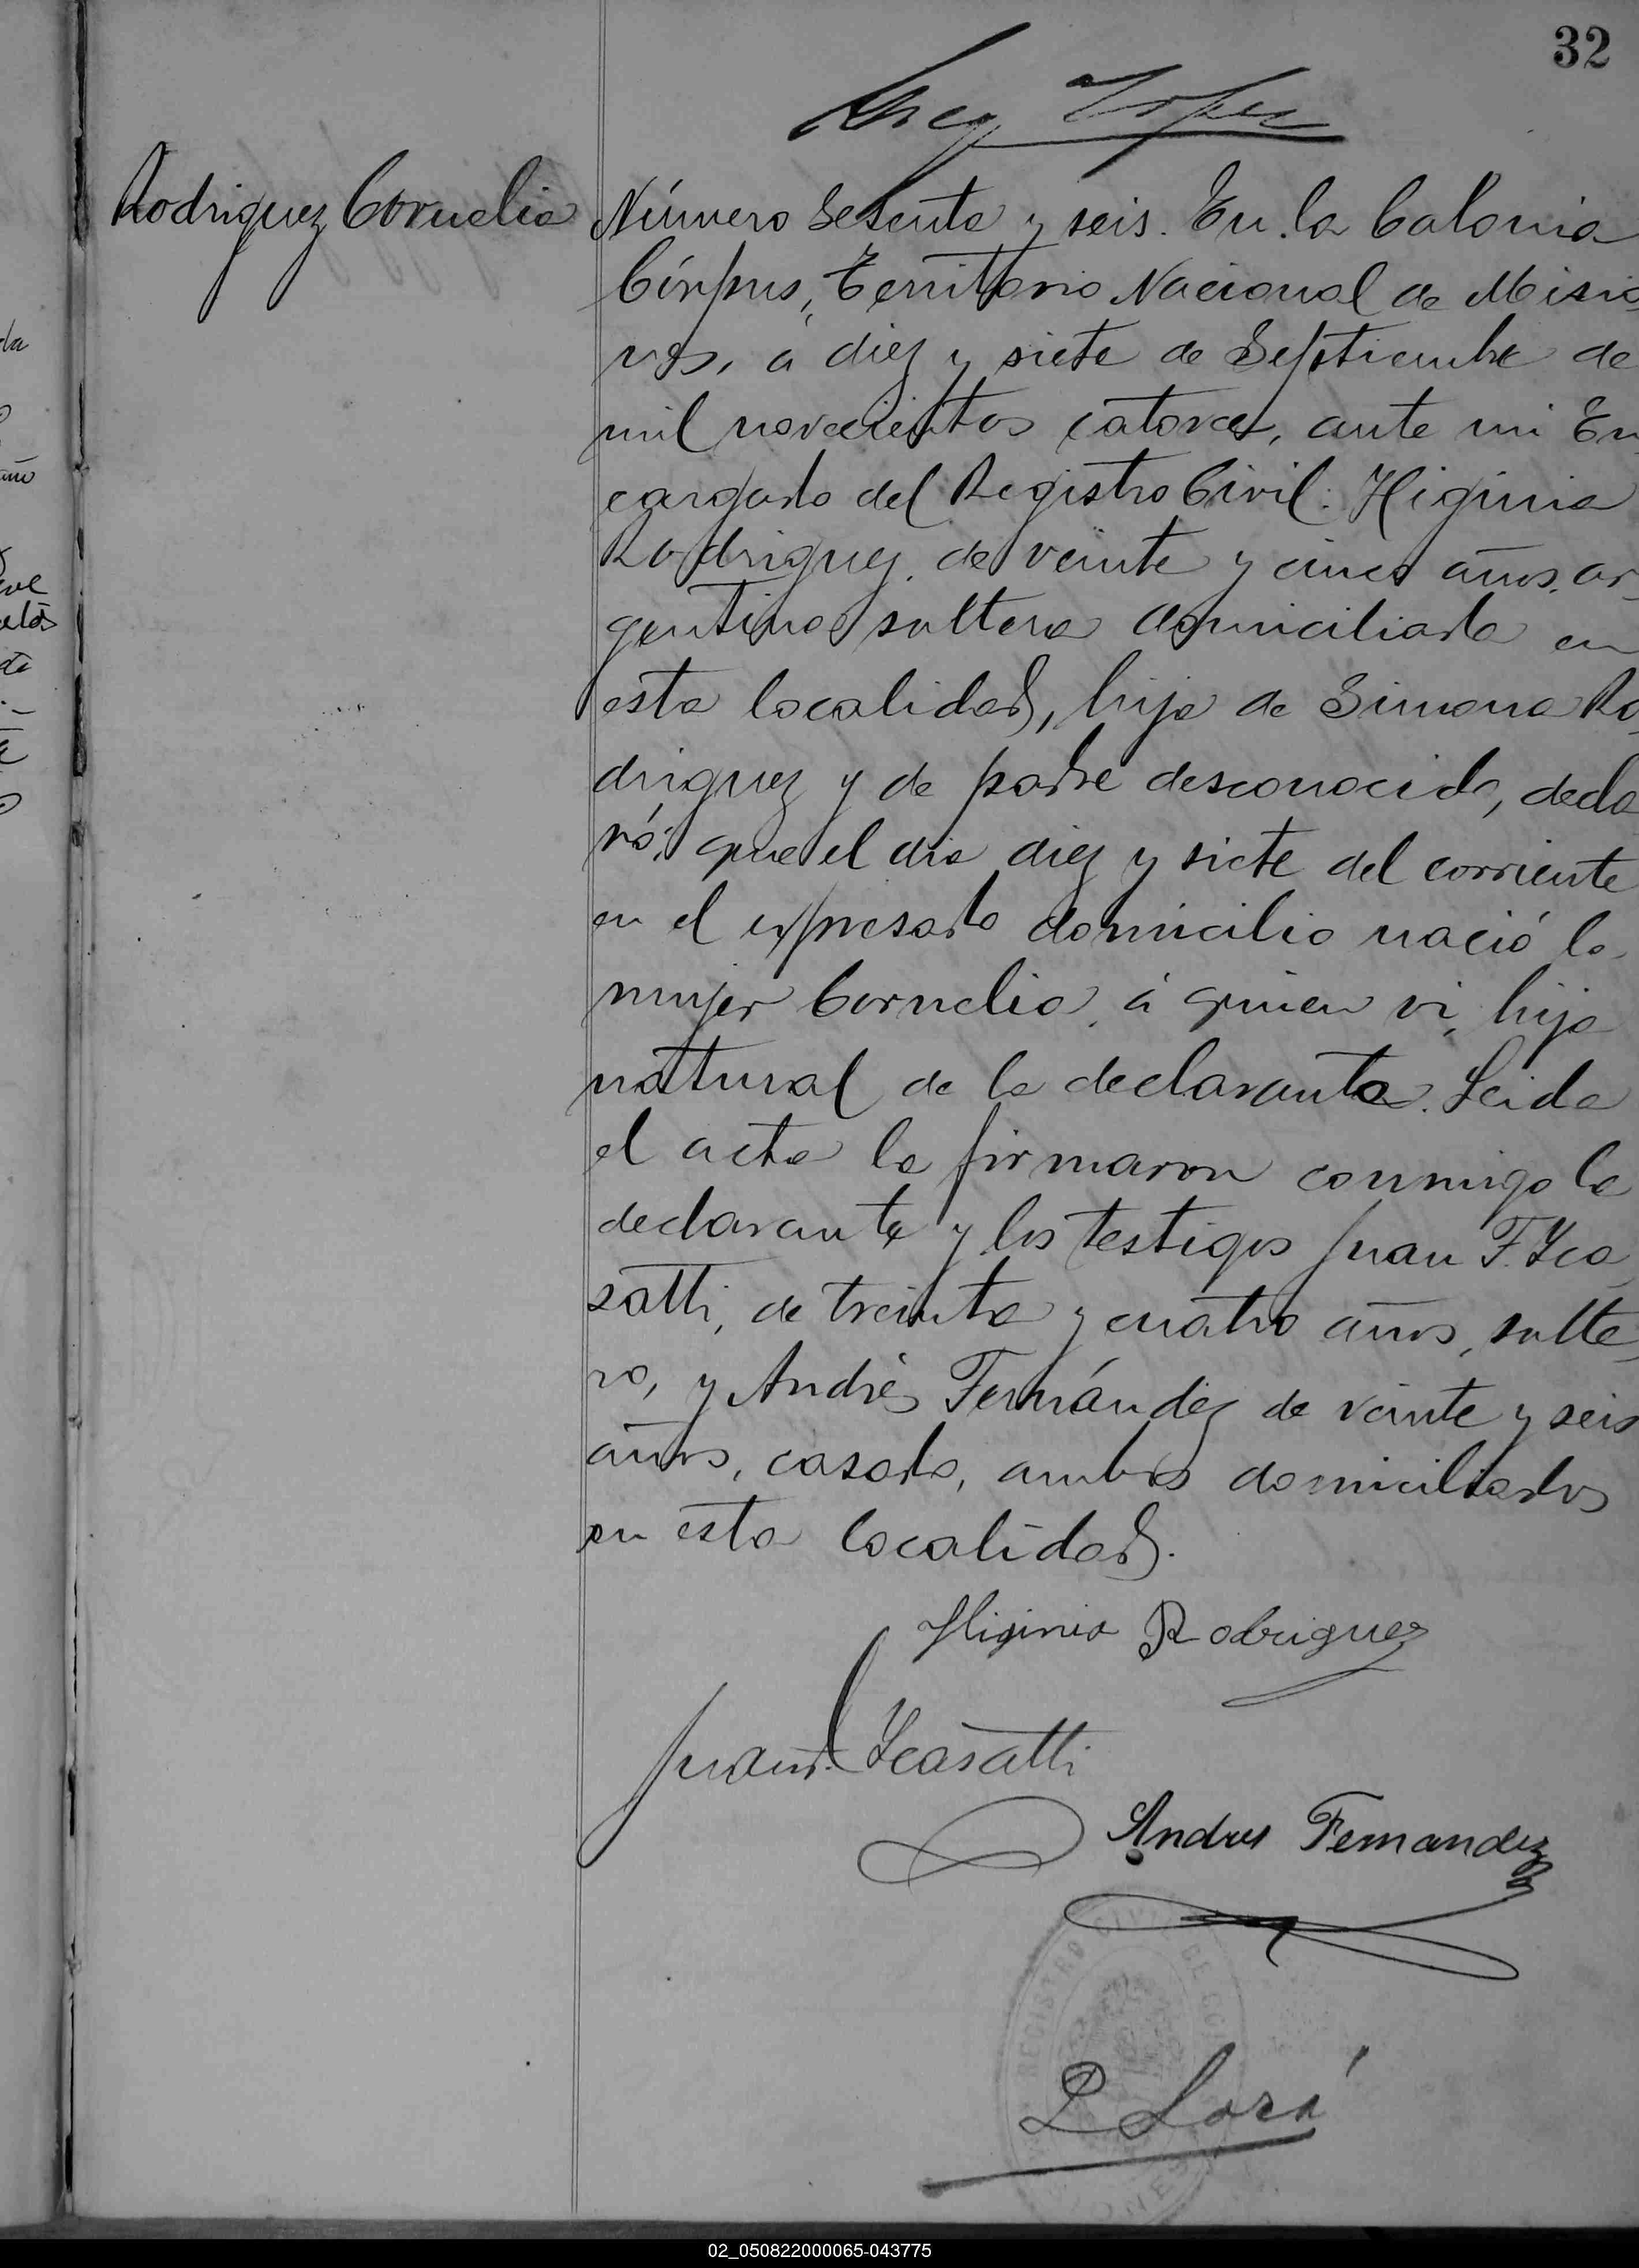 32
Lopez
Rodriguez Cornelia
Número Sesenta y seis. En la Colonia
Córpus, Territorio Nacional de Misio
nes, á diez y siete de Septiembre de
mil novecientos catorce, ante mi En
cargado del Registro Civil: Higinia
Rodriguez, de veinte y cinco años, ar
gentina soltera domiciliada en
esta localidad, hija de Simona Ro
driguez y de padre desconocido, decla
ró: que el dia diez y siete del corriente
en el expresado domicilio nació la
mujer Cornelia, á quien vi, hija
natural de la declaranta. Leida
el acta la firmaron conmigo la
declarante y los testigos Juan F. Sca
satti, de treinta y cuatro años, solte
ro, y Andrés Fernández de veinte y seis
años, casado, ambos domiciliados
en esta localidad.
Higinia Rodriguez
Juan F. Scasatti
Andres Fernandez
REGISTRO CIVIL DE
02_050822000065-043775